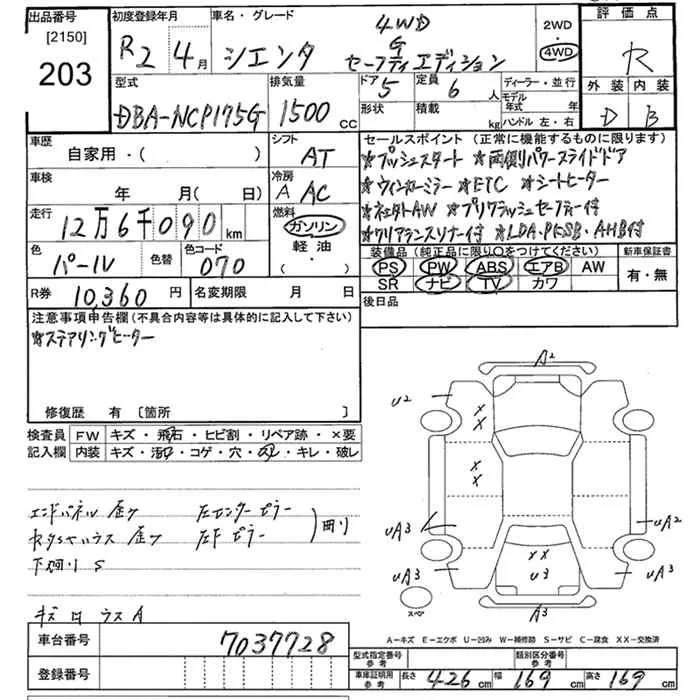 出品番号
[2150]
203
初度登録年月
R2 4月
車名・グレード
シエンタ
4WD
G
セーフティエディション
2WD
4WD
評価点
R
外装 内装
D B
型式
DBA-NCP175G
排気量
1500 CC
ドア 5
形状
定員 6 人
積載 kg
ディーラー・並行
モデル年式 年
ハンドル 左・右
車歴
自家用・( )
シフト
AT
車検
年 月( 日)
冷房
A AC
走行
12万6千090 km
燃料
ガソリン
軽油
・
色
パール
色替
色コード
070
R券 10,360 円
名変期限 月 日
セールスポイント (正常に機能するものに限ります)
☆プッシュスタート ☆両側パワースライドドア
☆ウィンカーミラー ☆ETC ☆シートヒーター
☆クリアランスソナー付 ☆LDA・PKSB・AHB付
装備品 (純正品に限り○をつけてください)
PS PW ABS エアB AW
SR ナビ TV カワ
新車保証書
有・無
後日品
注意事項申告欄 (不具合内容等は具体的に記入して下さい)
☆ステアリングヒーター
修復歴 有 [箇所 ]
検査員記入欄
FW キズ・飛石・ヒビ割・リペア跡・×要
内装 キズ・汚れ・コゲ・穴・凹・キレ・破レ
エンドパネル 歪ケ 左センターピラー
歪ケ 左F ピラー
曲り
下廻り S
A2
U2
XX
XX
UA3
UA2
UA3
UA3
XX
U3
A3
スペア
A-キズ E-エクボ U-凹み W-補修跡 S-サビ C-腐食 XX-交換済
車台番号 7037728
登録番号
型式指定番号 参考
類別区分番号 参考
車庫証明用 参考
長さ 426 cm 幅 169 cm 高さ 169 cm